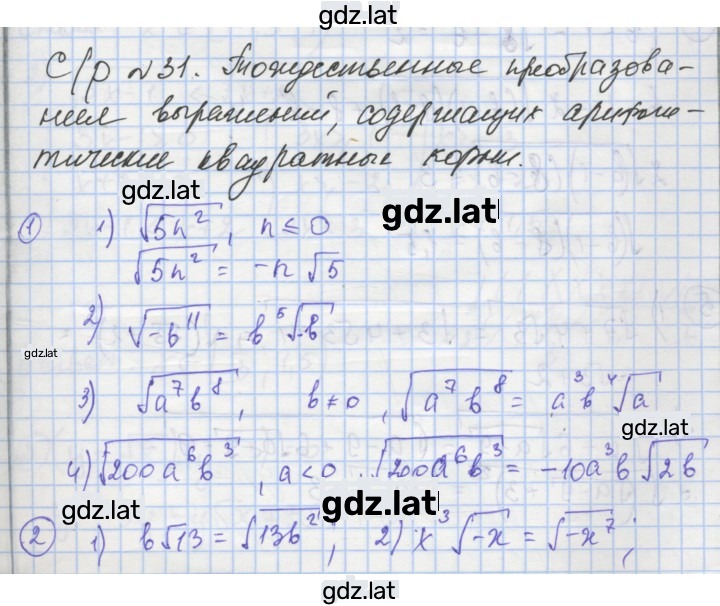 gdz.lat
С/р №31. Тождественные преобразова-
ния выражений, содержащих арифме-
тические квадратные корни.
gdz.lat
gdz.lat
① 1) √5n², n ≤ 0
√5n² = -n √5
2) √-b¹¹ = b⁵ √-b
gdz.lat
3) √a⁷b⁸, b ≠ 0, √a⁷b⁸ = a³b⁴√a
gdz.lat
4) √200a⁶b³, a < 0 √200a⁶b³ = -10a³b √2b
gdz.lat
gdz.lat
② 1) b√13 = √13b², 2) x³ √-x = √-x⁷;
gdz.lat